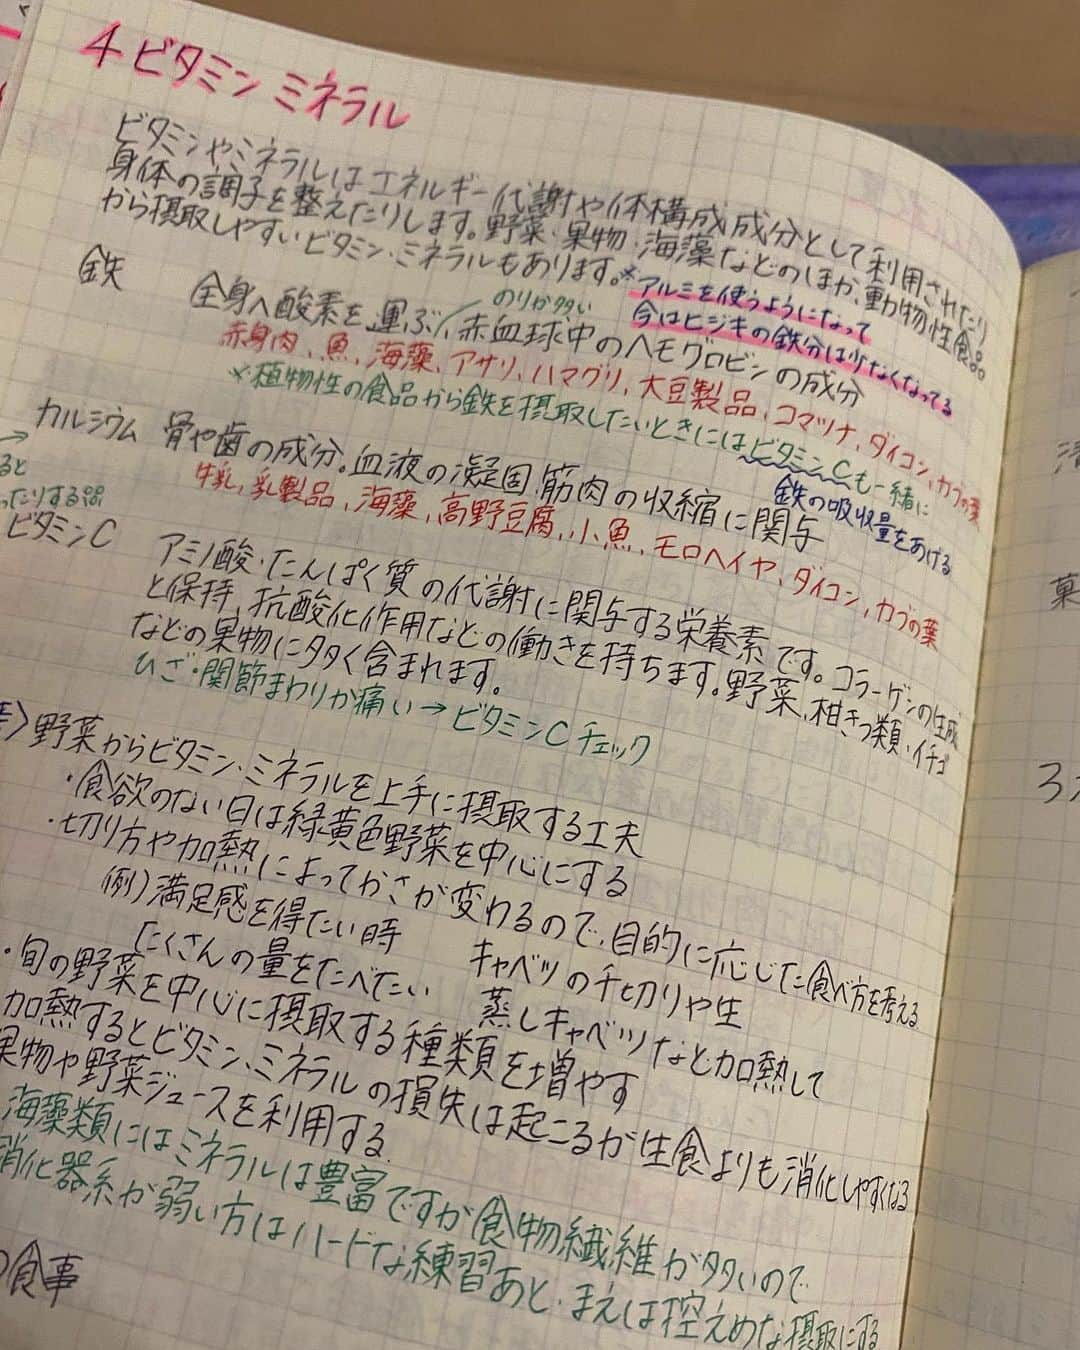 4 ビタミン ミネラル
ビタミンやミネラルはエネルギー代謝や体構成成分として利用されたり
身体の調子を整えたりします。野菜・果物・海藻などのほか、動物性食品
から摂取しやすいビタミン・ミネラルもあります。
※アルミを使うようになって
今はヒジキの鉄分は少なくなってる
鉄
のりが多い
全身へ酸素を運ぶ/赤血球中のヘモグロビンの成分
赤身肉、魚、海藻、アサリ、ハマグリ、大豆製品、コマツナ、ダイコン、カブの葉
※植物性の食品から鉄を摂取したいときにはビタミンCも一緒に
鉄の吸収量をあげる
カルシウム 骨や歯の成分。血液の凝固、筋肉の収縮に関与
牛乳、乳製品、海藻、高野豆腐、小魚、モロヘイヤ、ダイコン、カブの葉
→
ると
ったりする
ビタミンC アミノ酸・たんぱく質の代謝に関与する栄養素です。コラーゲンの生成
と保持、抗酸化作用などの働きを持ちます。野菜、柑きつ類・イチゴ
などの果物に多く含まれます。
ひざ・関節まわりが痛い→ビタミンCチェック
野菜からビタミン、ミネラルを上手に摂取する工夫
・食欲のない日は緑黄色野菜を中心にする
・切り方や加熱によってかさが変わるので、目的に応じた食べ方を考える
例)満足感を得たい時 キャベツの千切りや生
たくさんの量をたべたい 蒸しキャベツなど加熱して
・旬の野菜を中心に摂取する種類を増やす
加熱するとビタミン、ミネラルの損失は起こるが生食よりも消化しやすくなる
果物や野菜ジュースを利用する.
海藻類にはミネラルは豊富ですが食物繊維が多いので
消化器系が弱い方はハードな練習あと・まえは控えめな摂取にする
の食事